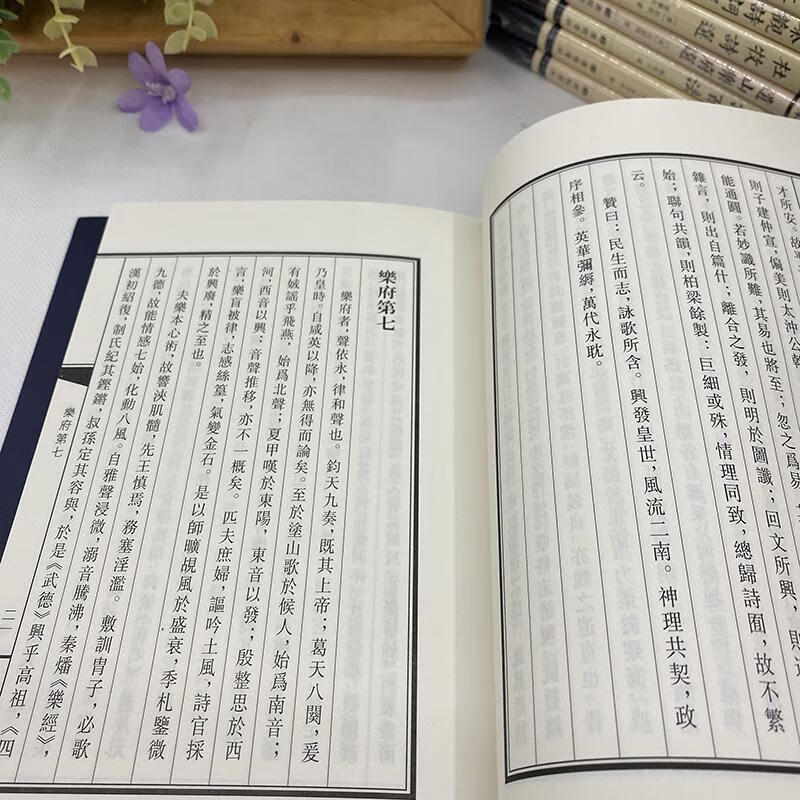 才所安。故
則子建仲宣，偏美則太沖公幹
能通圓。若妙識所難，其易也將至；忽之爲易
雜言，則出自篇什；離合之發，則明於圖讖；回文所興，則
始；聯句共韻，則柏梁餘製；巨細或殊，情理同致，總歸詩囿，故不繁
云。
贊曰：民生而志，詠歌所含。興發皇世，風流二南。神理共契，政
序相參。英華彌縟，萬代永耽。
樂府第七
樂府者，聲依永，律和聲也。鈞天九奏，既其上帝；葛天八闋，爰
乃皇時。自咸英以降，亦無得而論矣。至於塗山歌於候人，始爲南音；
有娀謡乎飛燕，始爲北聲；夏甲嘆於東陽，東音以發；殷整思於西
河，西音以興：音聲推移，亦不一概矣。匹夫庶婦，謳吟土風，詩官採
言，樂盲被律，志感絲篁，氣變金石。是以師曠覘風於盛衰，季札鑒微
於興廢，精之至也。
夫樂本心術，故響浹肌髓，先王慎焉，務塞淫濫。敷訓胄子，必歌
九德，故能情感七始，化動八風。自雅聲浸微，溺音騰沸，秦燔《樂經》，
漢初紹復，制氏紀其鏗鏘，叔孫定其容與，於是《武德》興乎高祖，《四
樂府第七
杜牧詩選